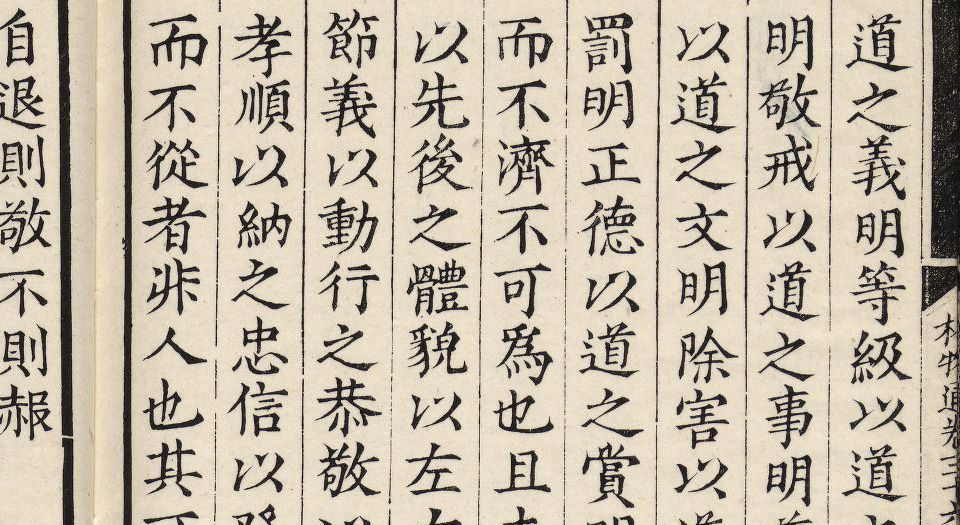 道之義明等級以道
明敬戒以道之事明
以道之文明除害以
罰明正德以道之賞
而不濟不可爲也且
以先後之體貌以左
節義以動行之恭敬
孝順以納之忠信以
而不從者非人也其
自退則敬不則赧